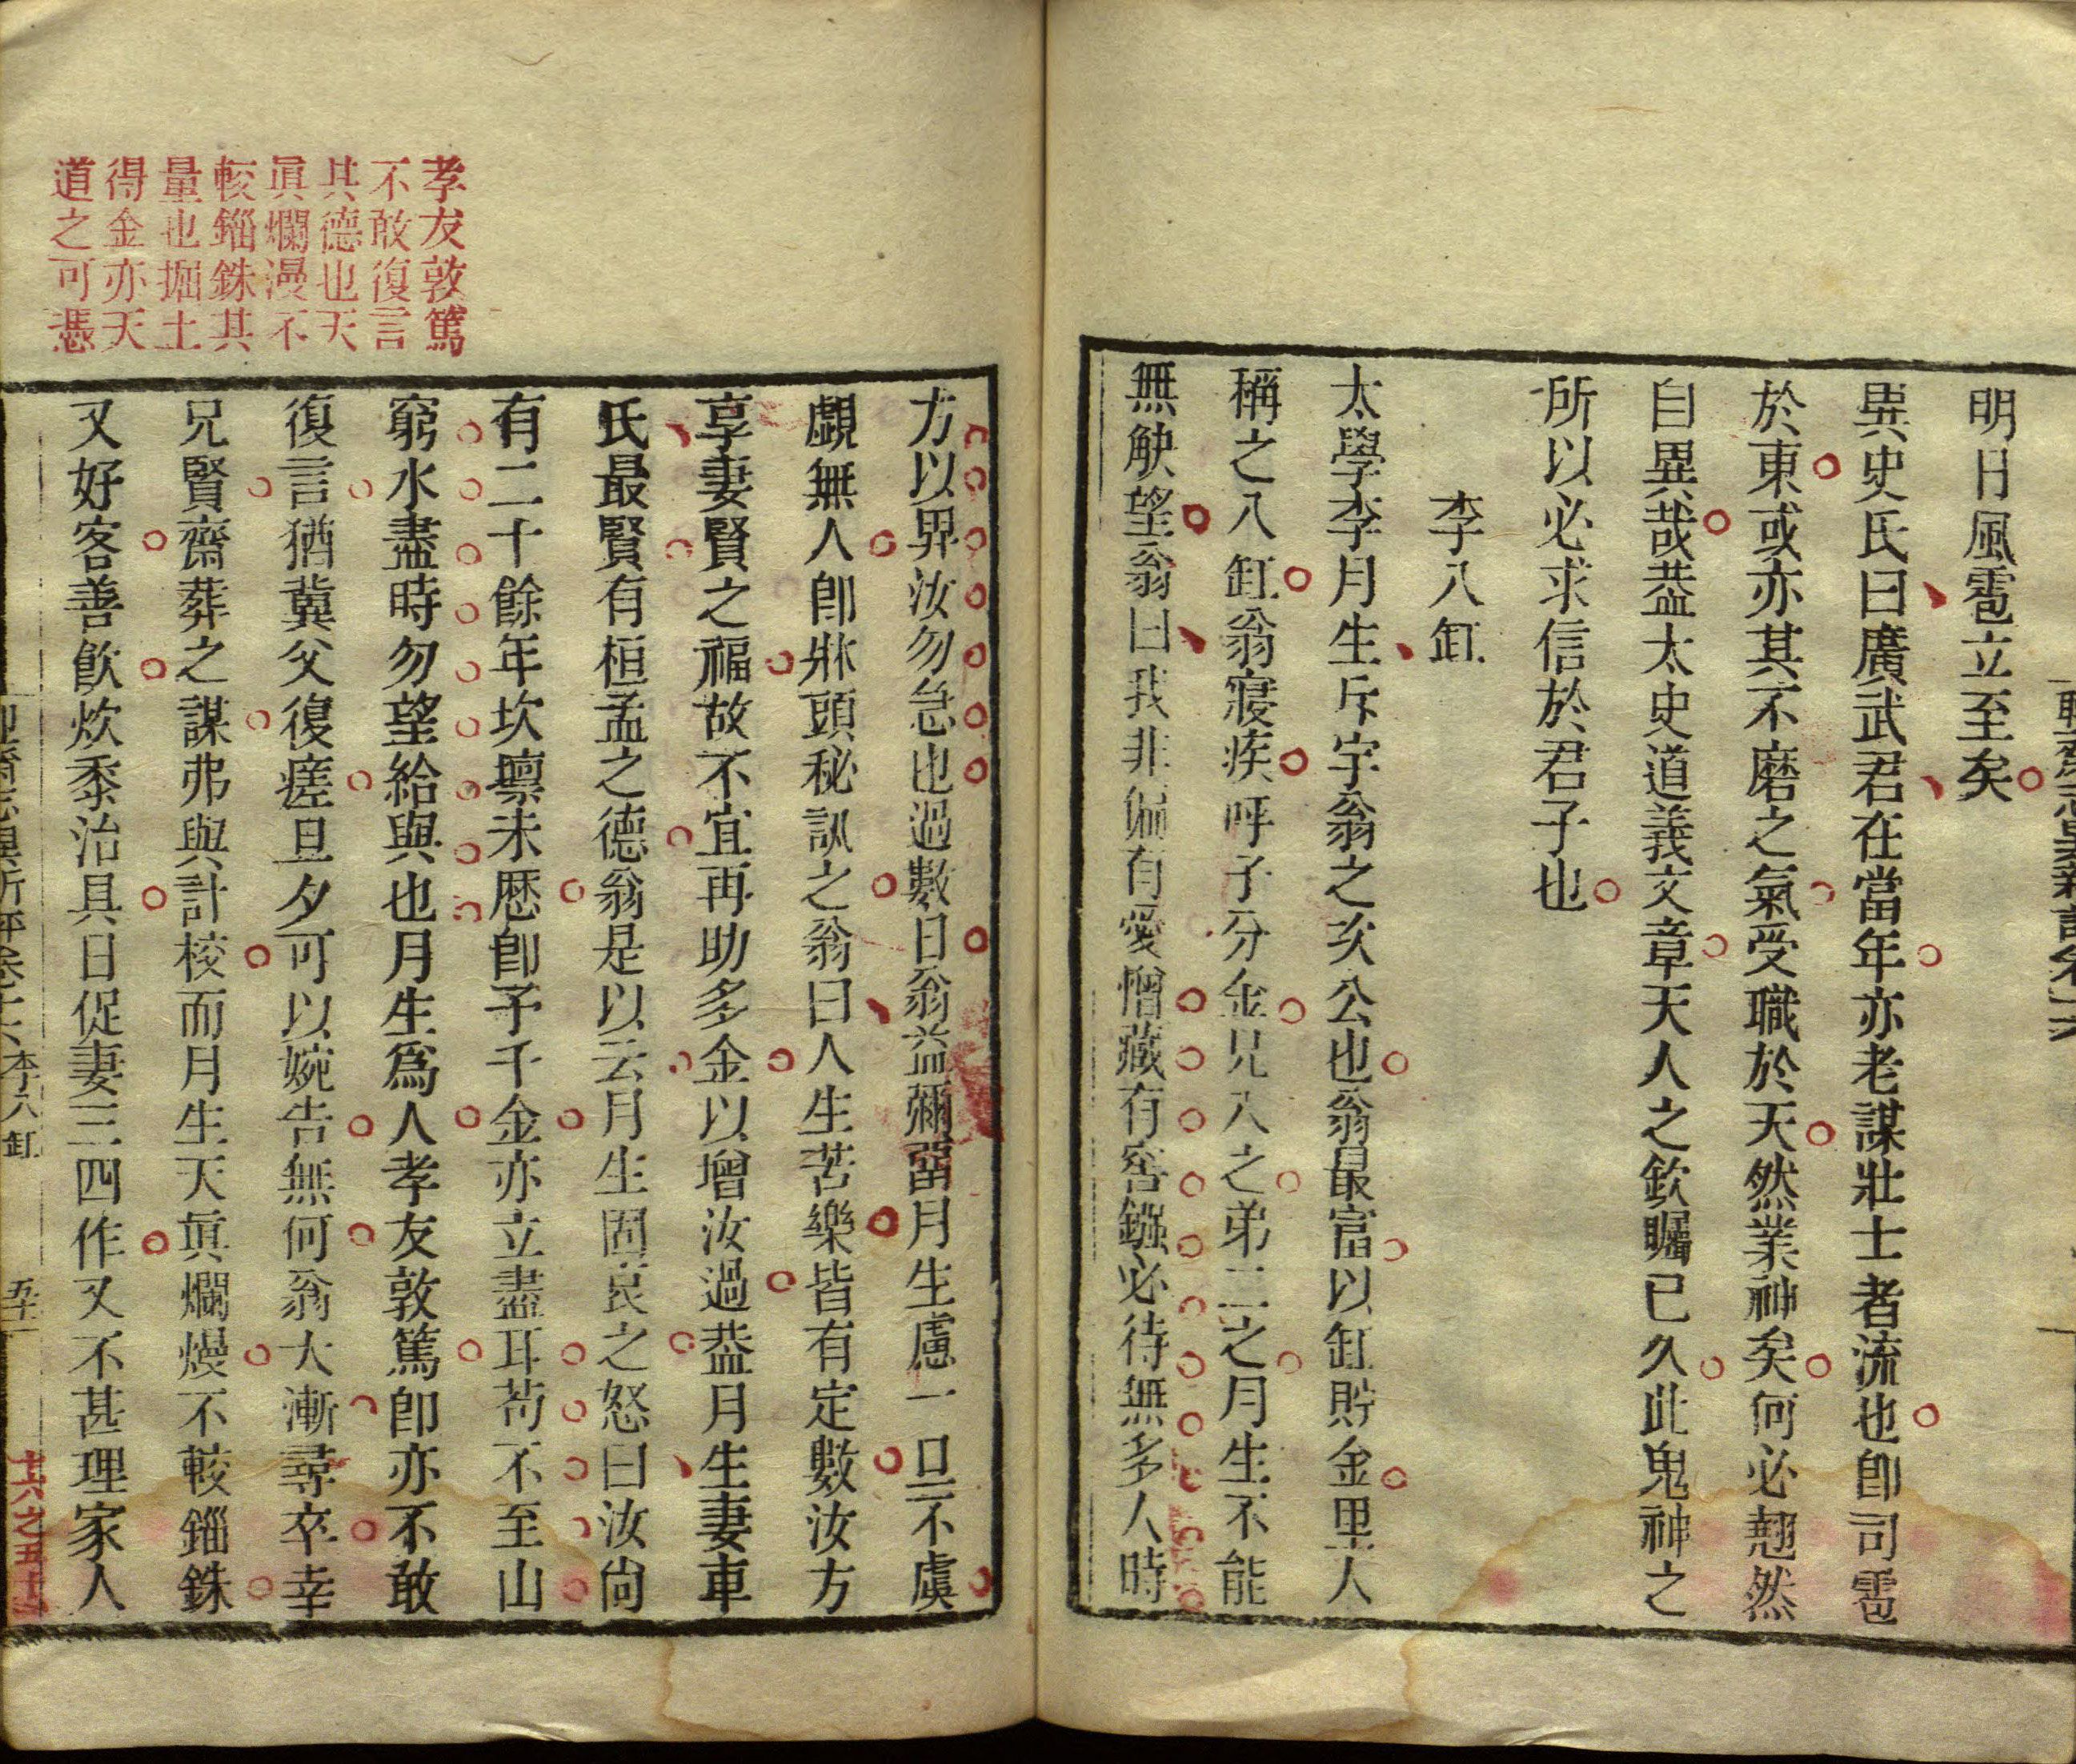 明日風雹立至矣
異史氏曰廣武君在當年亦老謀壯士者流也卽司雹
於東或亦其不磨之氣受職於天然業神矣何必翹然
自異哉葢太史道義文章天人之欽矚已久此鬼神之
所以必求信於君子也
李八缸
太學李月生斥字翁之次公也翁最富以缸貯金里人
稱之八缸翁寢疾呼子分金兄八之弟二之月生不能
無觖望翁曰我非偏有愛憎藏有窖鏹必待無多人時
方以畀汝勿急也過數日翁益彌留月生慮一旦不虞
覷無人卽牀頭秘訊之翁曰人生苦樂皆有定數汝方
享妻賢之福故不宜再助多金以增汝過葢月生妻車
氏最賢有桓孟之德翁是以云月生固哀之怒曰汝尙
有二十餘年坎壈未歷卽予千金亦立盡耳苟不至山
窮水盡時勿望給與也月生爲人孝友敦篤卽亦不敢
復言猶冀父復瘥旦夕可以婉告無何翁大漸尋卒幸
兄賢齋葬之謀弗與計校而月生天眞爛熳不較錙銖
又好客善飲炊黍治具日促妻三四作又不甚理家人
孝友敦篤
不敢復言
其德也天
眞爛漫不
較錙銖其
量也掘土
得金亦天
道之可憑
李八缸
十六之五十